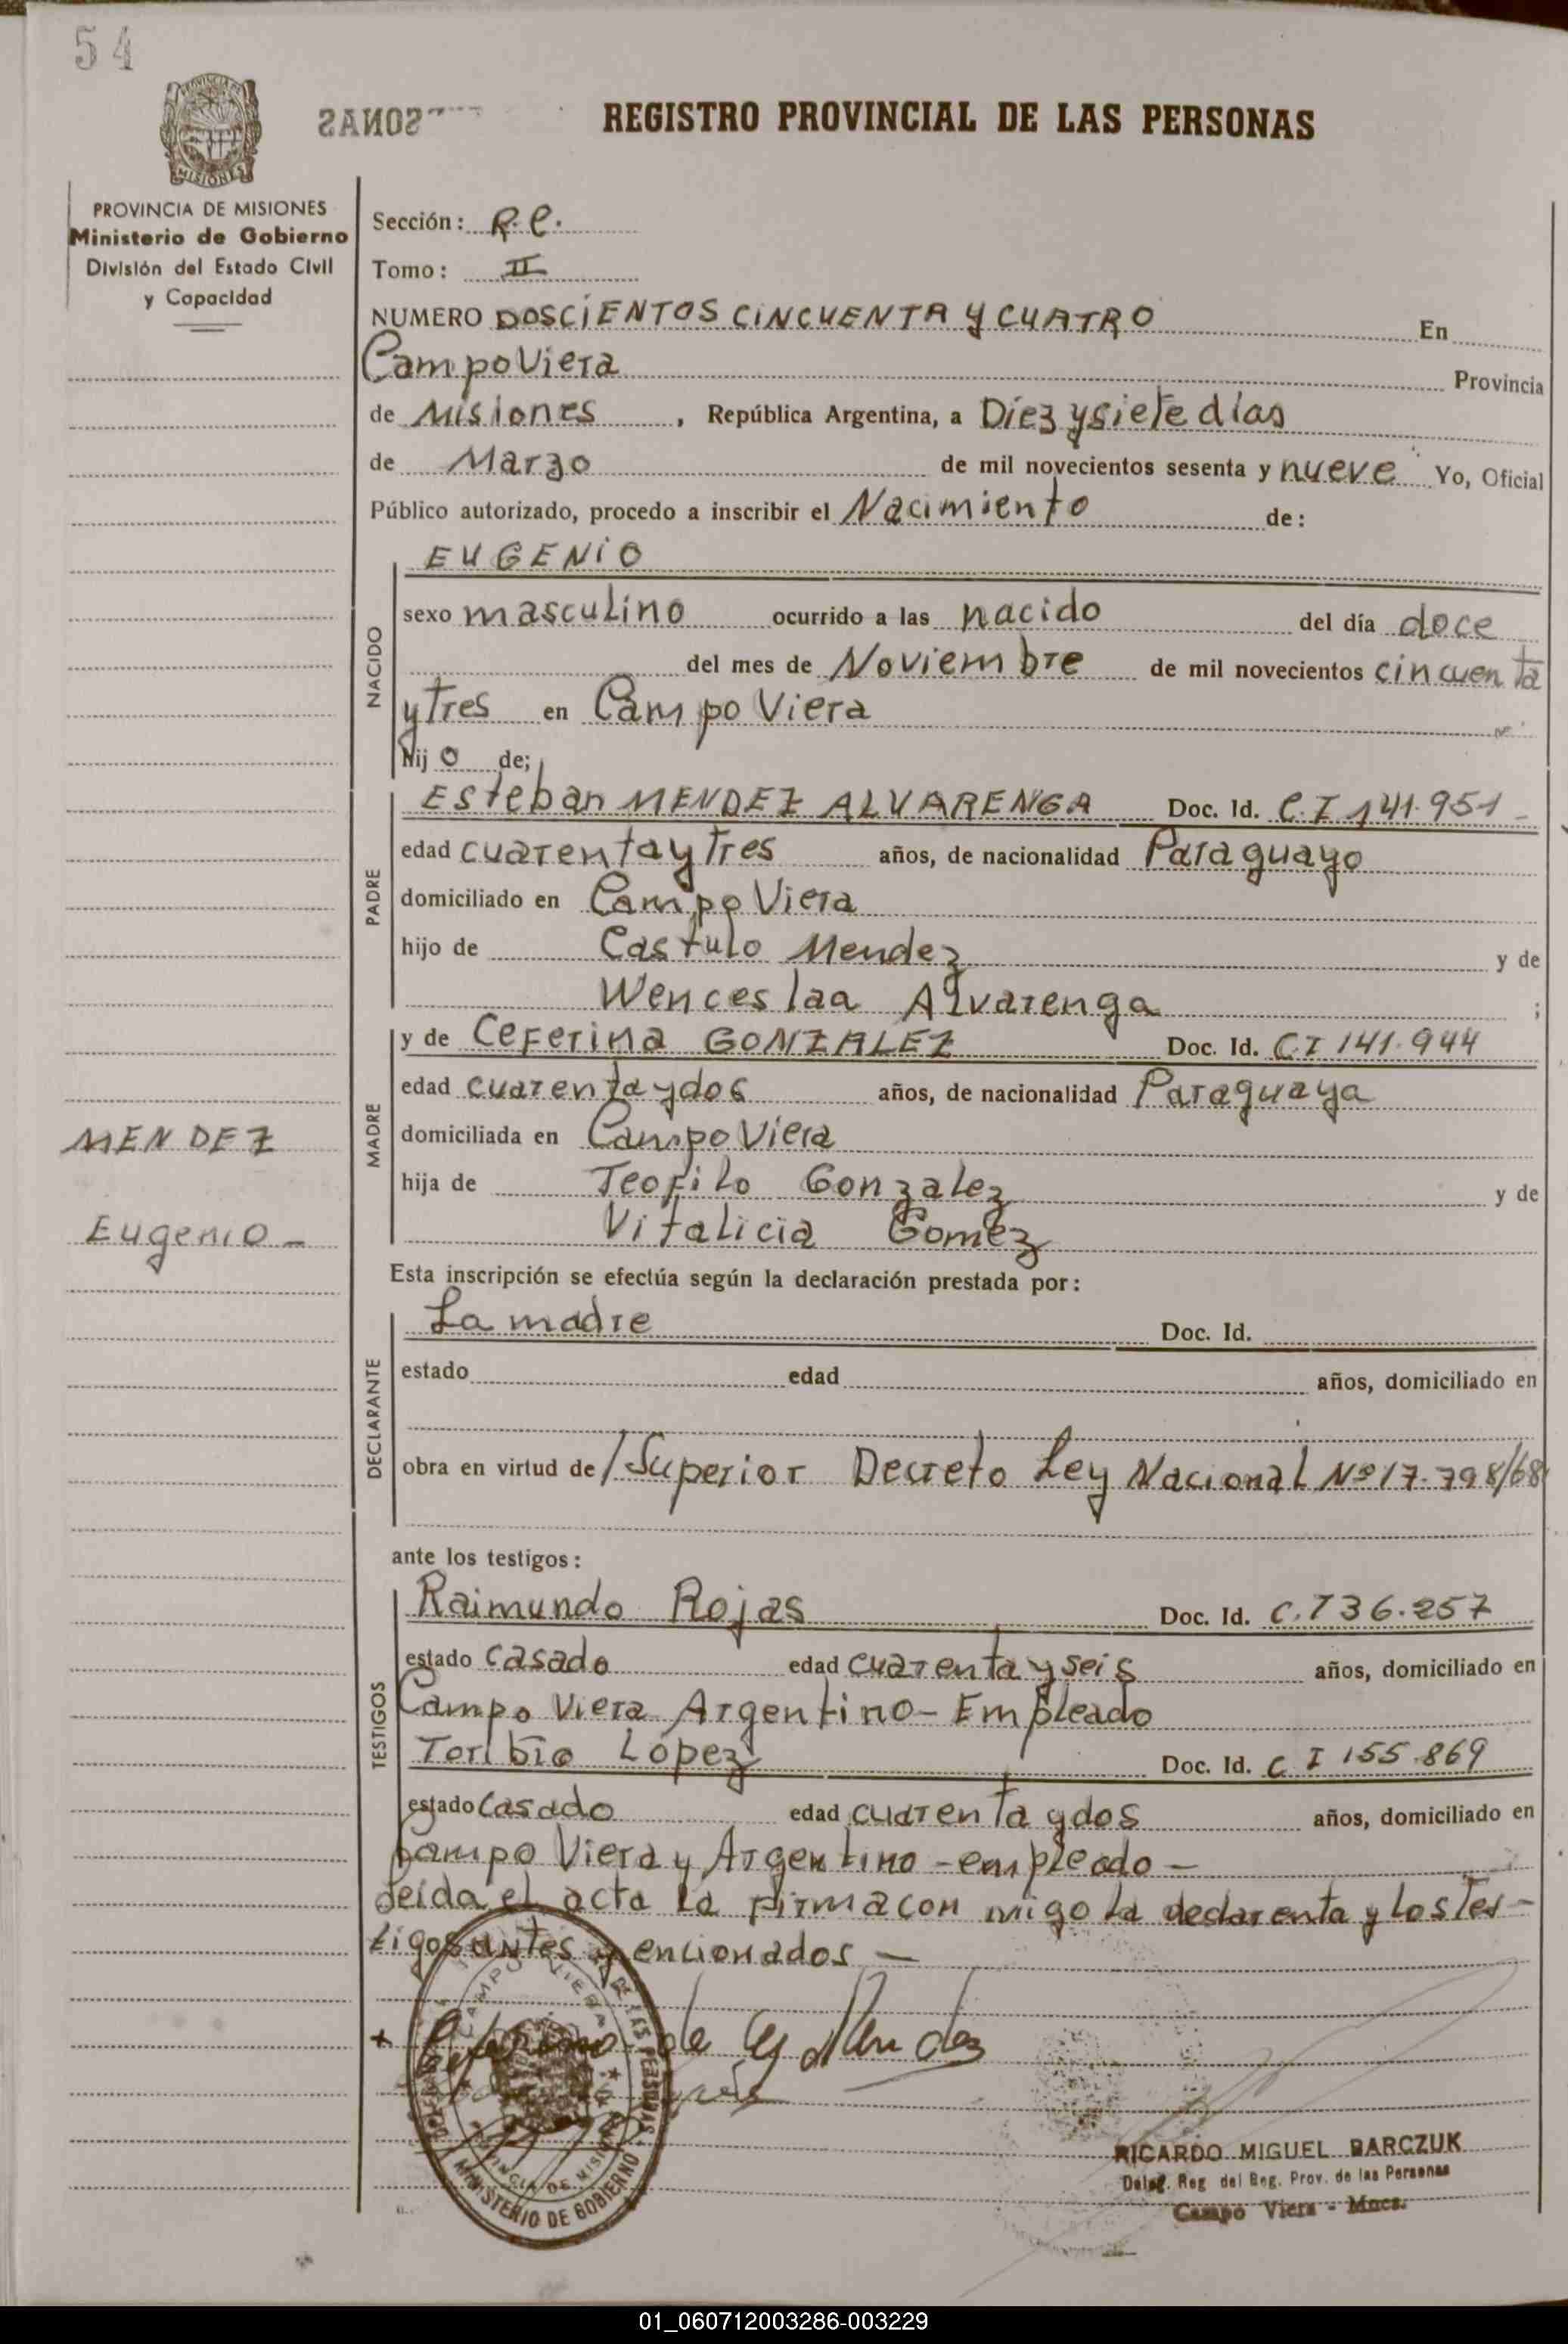 54
REGISTRO PROVINCIAL DE LAS PERSONAS
MISIONES
PROVINCIA DE MISIONES
Ministerio de Gobierno
División del Estado Civil
y Capacidad
Sección: R.C.
Tomo: II
NUMERO DOSCIENTOS CINCUENTA Y CUATRO En
Campo Viera Provincia
de Misiones, República Argentina, a Diez y siete días
de Marzo de mil novecientos sesenta y nueve Yo, Oficial
Público autorizado, procedo a inscribir el Nacimiento de:
NACIDO
EUGENIO
sexo masculino ocurrido a las nacido del día doce
del mes de Noviembre de mil novecientos cincuenta
y tres en Campo Viera
hijo de;
PADRE
Esteban MENDEZ ALVARENGA Doc. Id. C.I 141.951
edad cuarenta y tres años, de nacionalidad Paraguayo
domiciliado en Campo Viera
hijo de Castulo Mendez y de
Wenceslaa Alvarenga ;
MADRE
y de Ceferina GONZALEZ Doc. Id. C.I 141.944
edad cuarenta y dos años, de nacionalidad Paraguaya
domiciliada en Campo Viera
hija de Teofilo Gonzalez y de
Vitalicia Gomez
MENDEZ
Eugenio -
Esta inscripción se efectúa según la declaración prestada por:
DECLARANTE
La madre Doc. Id.
estado edad años, domiciliado en
obra en virtud de / Superior Decreto Ley Nacional Nº 17.798/68
ante los testigos:
TESTIGOS
Raimundo Rojas Doc. Id. C.I 36.257
estado casado edad cuarenta y seis años, domiciliado en
Campo Viera Argentino - Empleado
Toribio López Doc. Id. C I 155.869
estado casado edad cuarenta y dos años, domiciliado en
Campo Viera y Argentino - empleado -
Leida el acta la firma con migo la declarenta y los Tes-
tigos antes mencionados -
CAMPO VIERA
DE LAS PERSONAS
PROVINCIA DE MISIONES
MINISTERIO DE GOBIERNO
RICARDO MIGUEL BARCZUK
Deleg. Reg del Reg. Prov. de las Personas
Campo Viera - Mnes.
01_060712003286-003229